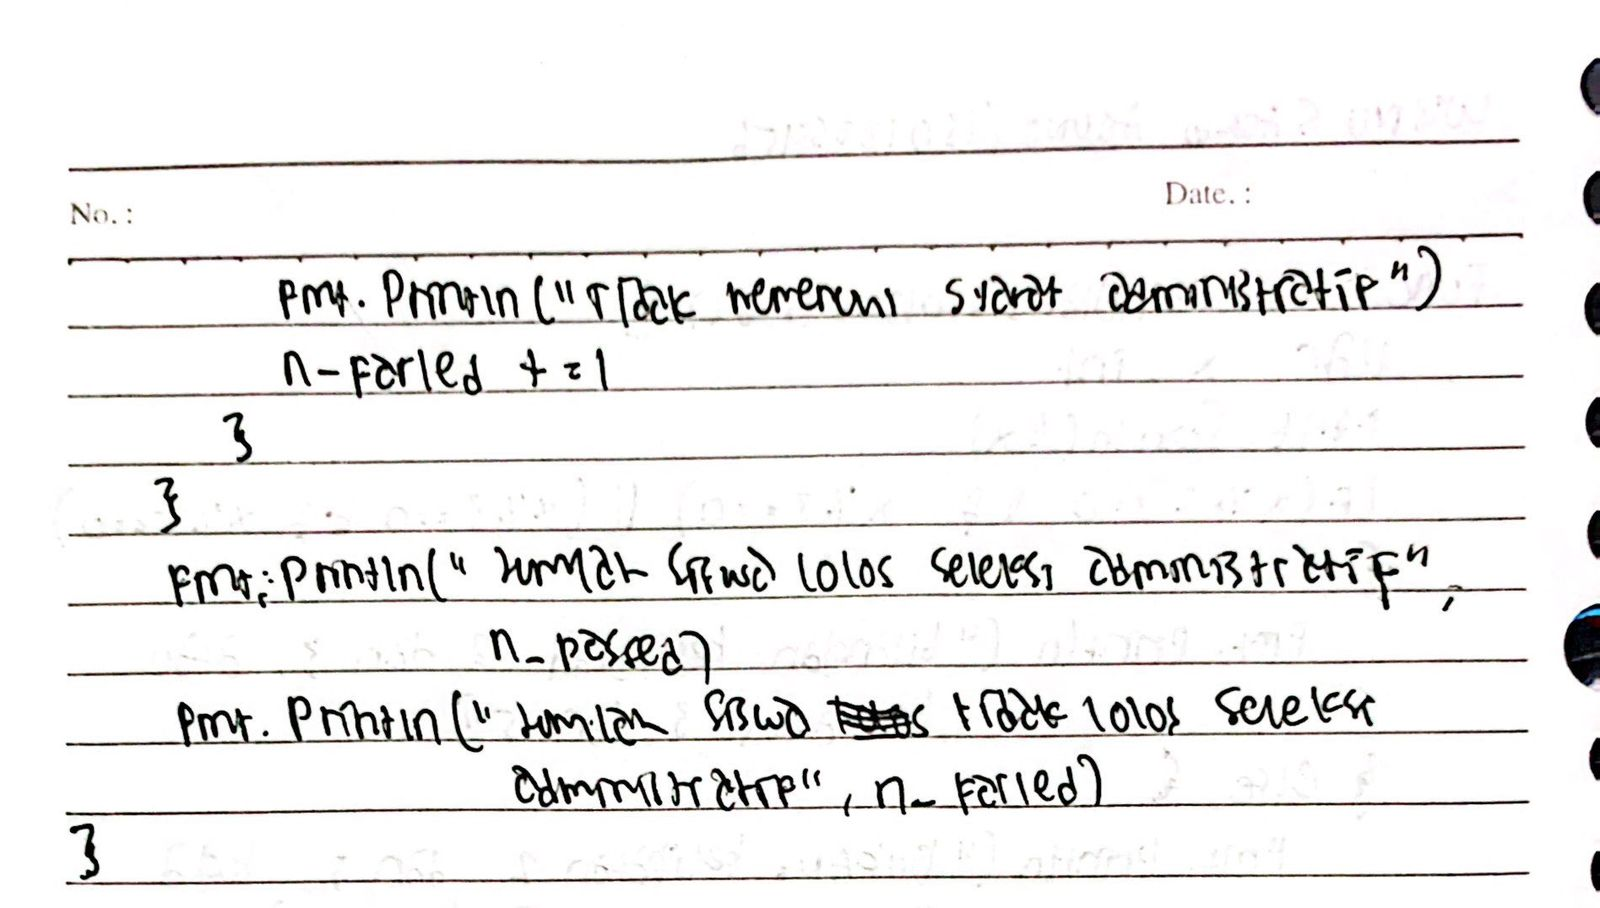 No. :
Date. :
fmt. Println ("Tidak memenuhi syarat administratif")
n-failed += 1
}
}
fmt. Println(" Jumlah siswa lolos seleksi administratif",
n_passed)
fmt. Println(" Jumlah siswa tidak lolos seleksi
administratif", n_failed)
}